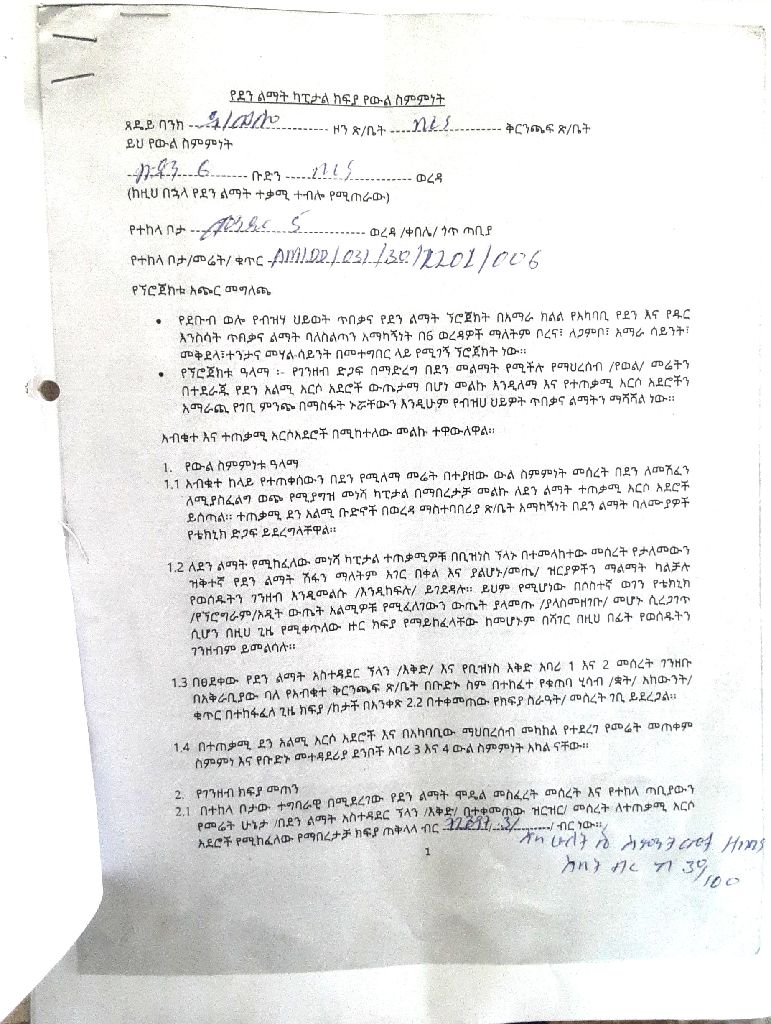 የደን ልማት ካፒታል ክፍያ የውል ስምምነት
ጸዴይ ባንክ ዞን ጽ/ቤት ቅርንጫፍ ጽ/ቤት
ይህ የውል ስምምነት
ቡድን ወረዳ
(ከዚህ በኋላ የደን ልማት ተቃሚ ተብሎ የሚጠራው)
የተከላ ቦታ 5 ወረዳ /ቀበሌ/ ጎጥ ጣቢያ
የተከላ ቦታ/መሬት/ ቁጥር AM/DD/031/30/2201/006
የኘሮጀክቱ አጭር መግለጫ
• የደቡብ ወሎ የብዝሃ ህይወት ጥበቃና የደን ልማት ኘሮጀክት በአማራ ክልል የአካባቢ የደን እና የዱር
እንስሳት ጥበቃና ልማት ባለስልጣን አማካኝነት በ6 ወረዳዎች ማለትም ቦረና፣ ለጋምቦ፣ አማራ ሳይንት፣
መቅደላ፣ተንታና መሃል-ሳይንት በመተግበር ላይ የሚገኝ ኘሮጀክት ነው።
• የኘሮጀክቱ ዓላማ ፡- የገንዘብ ድጋፍ በማድረግ በደን መልማት የሚችሉ የማህረሰብ /የወል/ መሬትን
በተደራጁ የደን አልሚ አርሶ አደሮች ውጤታማ በሆነ መልኩ እንዲለማ እና የተጠቃሚ አርሶ አደሮችን
አማራጪ የገቢ ምንጭ በማስፋት ኑሯቸውን እንዲሁም የብዝሀ ህይዎት ጥበቃና ልማትን ማሻሻል ነው።
አብቁተ እና ተጠቃሚ አርሶአደሮች በሚከተለው መልኩ ተዋውለዋል።
1. የውል ስምምነቱ ዓላማ
1.1 አብቁተ ከላይ የተጠቀሰውን በደን የሚለማ መሬት በተያዘው ውል ስምምነት መሰረት በደን ለመሸፈን
ለሚያስፈልግ ወጭ የሚያግዝ መነሻ ካፒታል በማበረታቻ መልኩ ለደን ልማት ተጠቃሚ አርሶ አደሮች
ይሰጣል። ተጠቃሚ ደን አልሚ ቡድኖች በወረዳ ማስተባበሪያ ጽ/ቤት አማካኝነት በደን ልማት ባለሙያዎች
የቴክኒክ ድጋፍ ይደረግላቸዋል።
1.2 ለደን ልማት የሚከፈለው መነሻ ካፒታል ተጠቃሚዎቹ በቢዝነስ ኘላኑ በተመላከተው መሰረት የታለመውን
ዝቅተኛ የደን ልማት ሽፋን ማለትም አገር በቀል እና ያልሆኑ/መጤ/ ዝርያዎችን ማልማት ካልቻሉ
የወሰዱትን ገንዘብ እንዲመልሱ /እንዲከፍሉ/ ይገደዳሉ። ይህም የሚሆነው በሶስተኛ ወገን የቴክኒክ
/የኘሮግራም/ኦዲት ውጤት አልሚዎቹ የሚፈለገውን ውጤት ያላመጡ /ያላስመዘገቡ/ መሆኑ ሲረጋገጥ
ሲሆን በዚህ ጊዜ የሚቀጥለው ዙር ክፍያ የማይከፈላቸው ከመሆኑም በሻገር በዚህ በፊት የወሰዱትን
ገንዘብም ይመልሳሉ።
1.3 በፀደቀው የደን ልማት አስተዳደር ኘላን /እቅድ/ እና የቢዝነስ እቅድ አባሪ 1 እና 2 መሰረት ገንዘቡ
በአቅራቢያው ባለ የአብቁተ ቅርንጫፍ ጽ/ቤት በቡድኑ ስም በተከፈተ የቁጠባ ሂሳብ /ቋት/ አካውንት/
ቁጥር በተከፋፈለ ጊዜ ክፍያ /ከታች በአንቀጽ 2.2 በተቀመጠው የክፍያ ስራዓት/ መሰረት ገቢ ይደረጋል።
1.4 በተጠቃሚ ደን አልሚ አርሶ አደሮች እና በአካባቢው ማህበረሰብ መካከል የተደረገ የመሬት መጠቀም
ስምምነ እና የቡድኑ መተዳደሪያ ደንቦች አባሪ 3 እና 4 ውል ስምምነት አካል ናቸው።
2. የገንዘብ ክፍያ መጠን
2.1 በተከላ ቦታው ተግባራዊ በሚደረገው የደን ልማት ሞዴል መስፈረት መሰረት እና የተከላ ጣቢያውን
የመሬት ሁኔታ /በደን ልማት አስተዳደር ኘላን /እቅድ/ በተቀመጠው ዝርዝር/ መሰረት ለተጠቃሚ አርሶ
አደሮች የሚከፈለው የማበረታቻ ክፍያ ጠቅላላ ብር / ብር ነው።
30/100
1